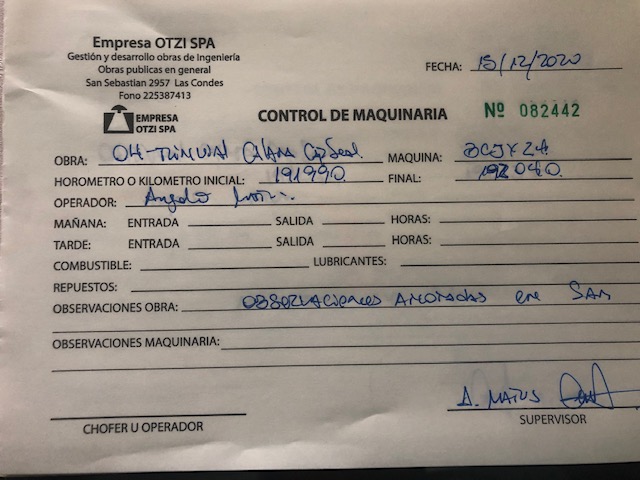 Empresa OTZI SPA
Gestión y desarrollo obras de Ingeniería
Obras publicas en general
San Sebastian 2937 Las Condes
Fono 225387413
FECHA: 15/12/2020
EMPRESA
OTZI SPA
CONTROL DE MAQUINARIA
Nº 082442
OBRA: MAQUINA:
HOROMETRO O KILOMETRO INICIAL: 191990 FINAL: 192040
OPERADOR: Angelo
MAÑANA: ENTRADA SALIDA HORAS:
TARDE: ENTRADA SALIDA HORAS:
COMBUSTIBLE: LUBRICANTES:
REPUESTOS:
OBSERVACIONES OBRA: OBSERVACIONES ANOTADAS EN
OBSERVACIONES MAQUINARIA:
A. MATUS
CHOFER U OPERADOR SUPERVISOR